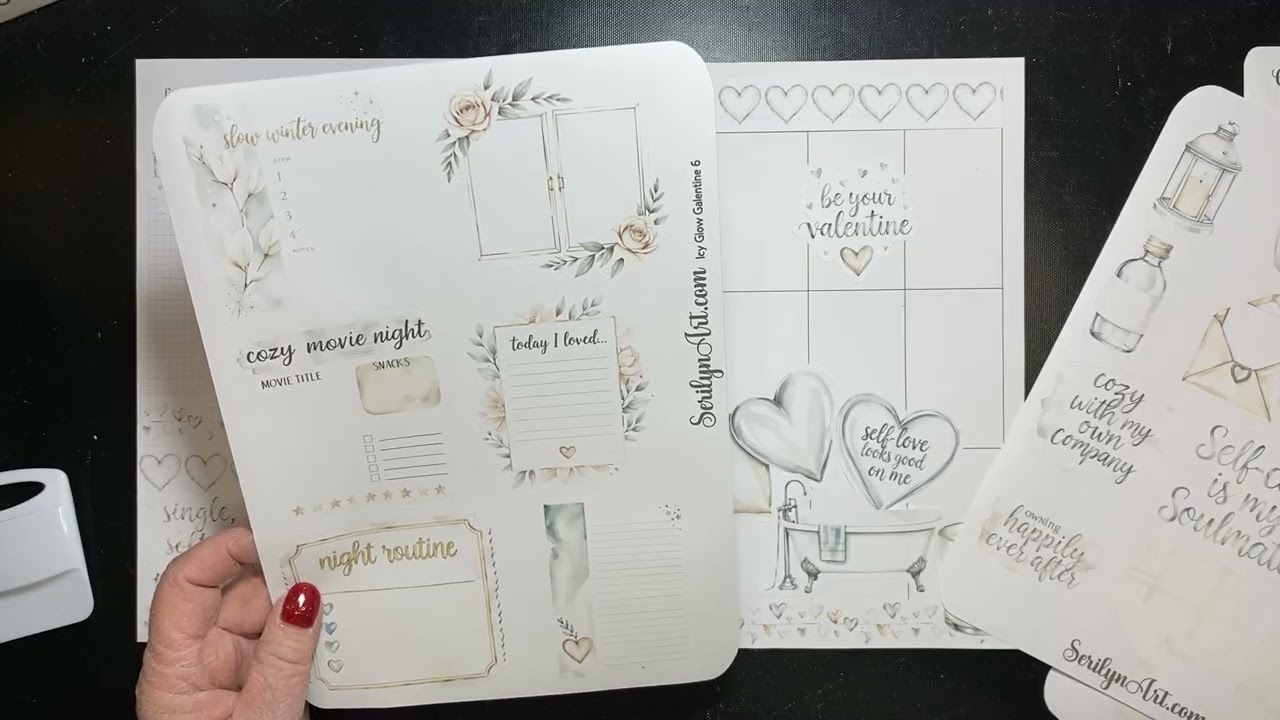 slow winter evening
STEP
1
2
3
4
NOTES
cozy movie night
MOVIE TITLE
SNACKS
today I loved...
night routine
SerilynArt.com Icy Glow Galentine 6
single,
be your
valentine
self-love
looks good
on me
cozy
with my
own
company
owning
happily
ever after
is my
SerilynArt.com